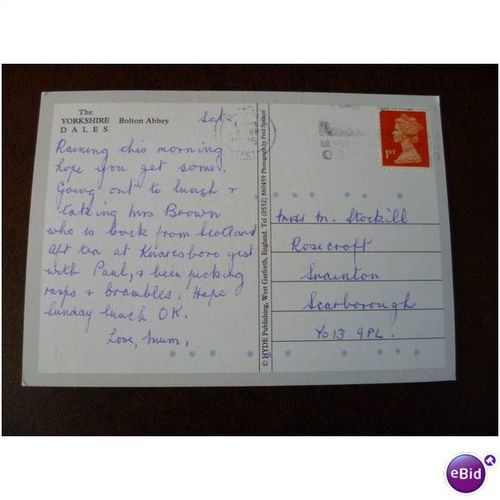 The
YORKSHIRE
DALES
Bolton Abbey
Sat.
Raining this morning
hope you get some.
Going out to lunch &
taking Mrs Brown
who is back from Scotland
Aft tea at Knaresboro yest
with Paul, & been picking
rasps & brambles. Hope
Sunday lunch OK.
Love, Mum.
© HYDE Publishing, West Garforth, England. Tel (0532) 860459 Photograph by Fred Spencer
1ST
Miss M. Stockill
Rosecroft
Snainton
Scarborough
YO13 9PL.
eBid